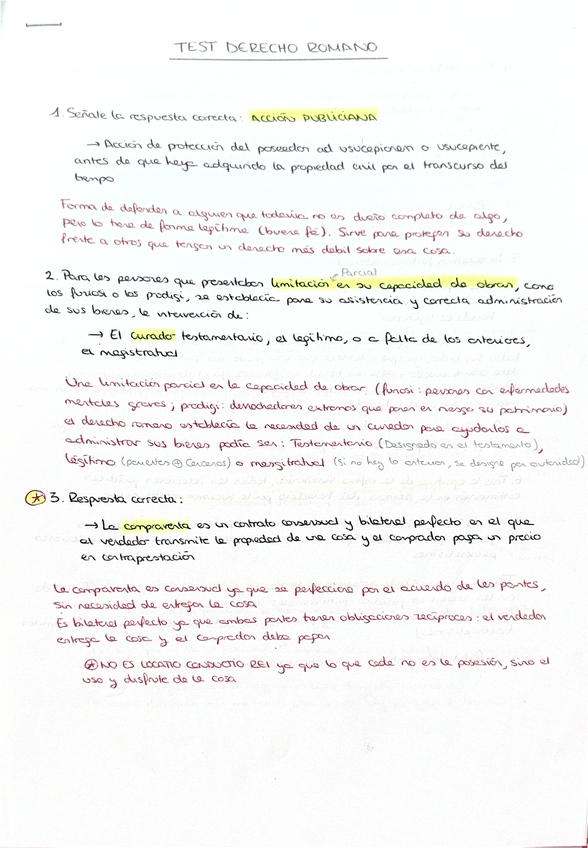 TEST DERECHO ROMANO
1. Señale la respuesta correcta: ACCIÓN PUBLICIANA
→ Acción de protección del poseedor ad usucapionem o usucapiente,
antes de que haya adquirido la propiedad civil por el transcurso del
tiempo
Forma de defender a alguien que todavía no es dueño completo de algo,
pero lo tiene de forma legítima (buena fé). Sirve para proteger su derecho
frente a otros que tengan un derecho más debil sobre esa cosa.
Parcial
2. Para las personas que presentaban limitación en su capacidad de obrar, como
los furiosi o los prodigi, se establecía para su asistencia y correcta administración
de sus bienes, la intervención de:
→ El curador testamentario, el legítimo, o a falta de los anteriores,
el magistratual
Una limitación parcial en la capacidad de obrar (furiosi: personas con enfermedades
mentales graves; prodigi: derrochadores extremos que ponen en riesgo su patrimonio)
el derecho romano establecía la necesidad de un curador para ayudarlos a
administrar sus bienes podía ser: Testamentario (Designado en el testamento),
legítimo (parientes ⊕ cercanos) o magistratual (si no hay lo anterior, se designa por autoridad)
* 3. Respuesta correcta:
→ La compraventa es un contrato consensual y bilateral perfecto en el que
el vendedor transmite la propiedad de una cosa y el comprador paga un precio
en contraprestación
La compraventa es consensual ya que se perfecciona por el acuerdo de las partes,
sin necesidad de entregar la cosa
Es bilateral perfecto ya que ambas partes tienen obligaciones recíprocas: el vendedor
entrega la cosa y el comprador debe pagar
* NO ES LOCATIO CONDUCTIO REI ya que lo que cede no es la posesión, sino el
uso y disfrute de la cosa